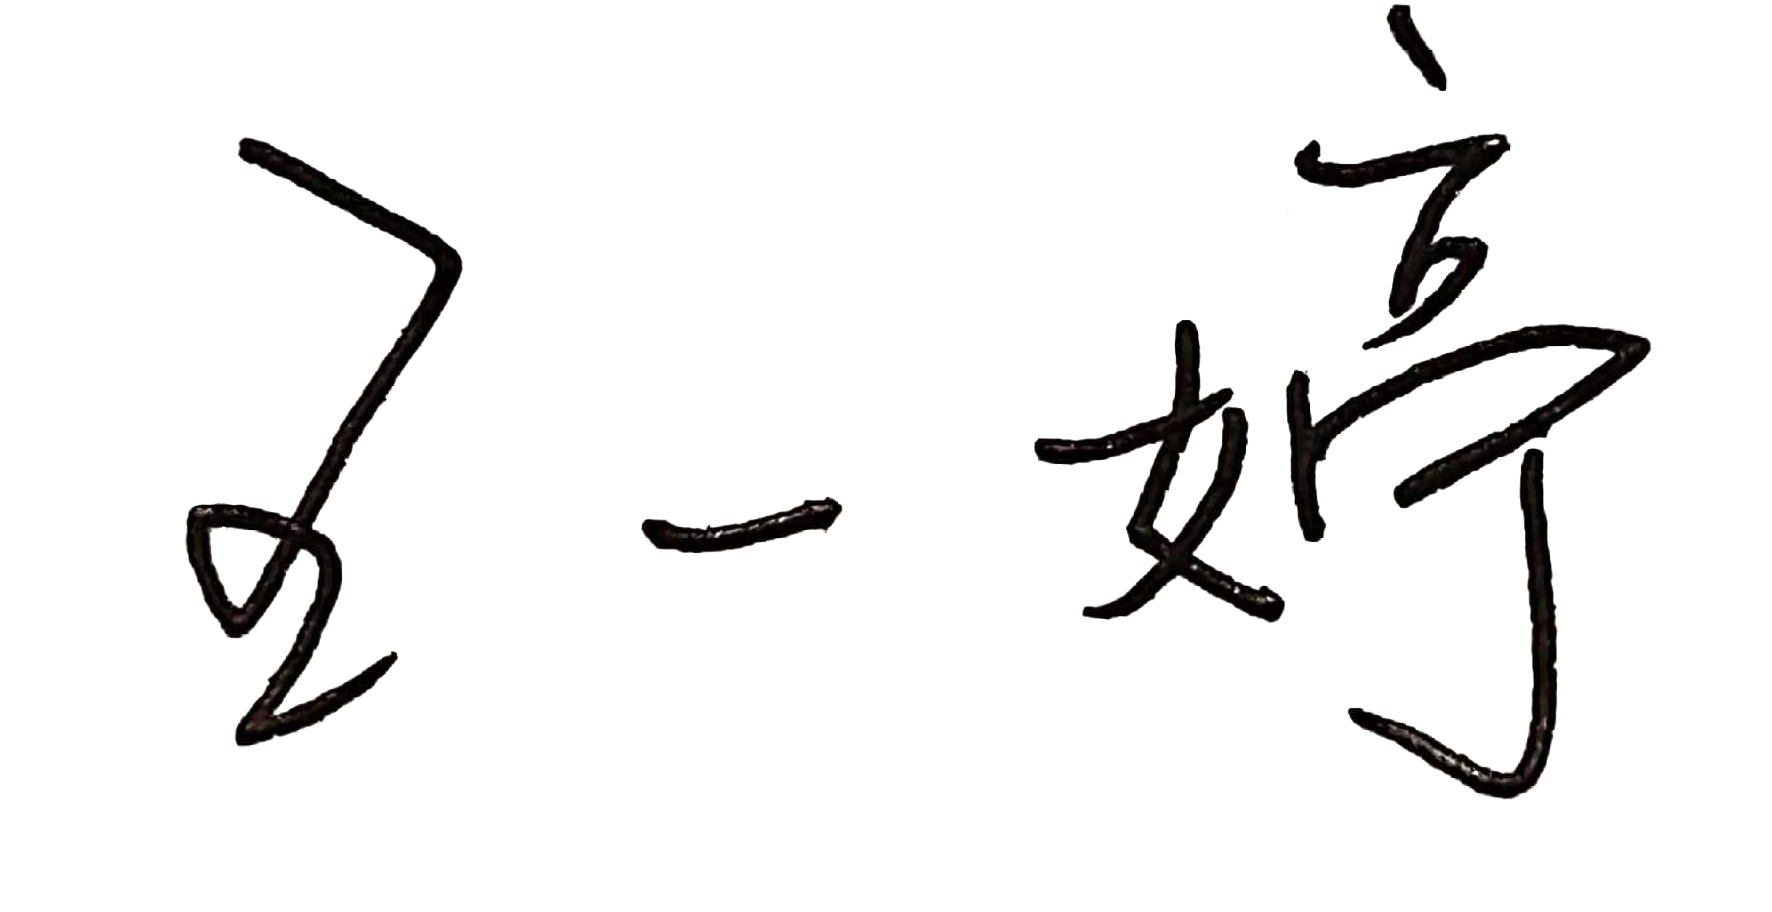 王一婷